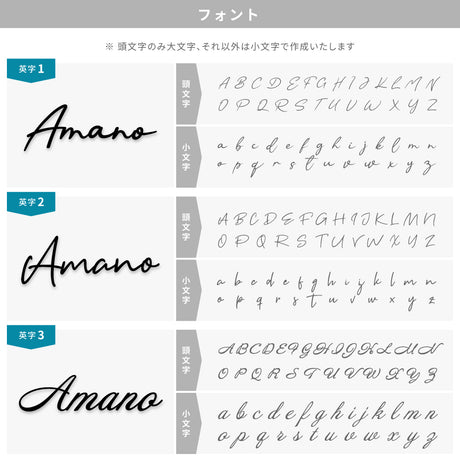 フォント
※ 頭文字のみ大文字、それ以外は小文字で作成いたします
英字1
Amano
頭文字
A B C D E F G H I J K L M N
O P Q R S T U V W X Y Z
小文字
a b c d e f g h i j k l m n
o p q r s t u v w x y z
英字2
Amano
頭文字
A B C D E F G H I J K L M N
O P Q R S T U V W X Y Z
小文字
a b c d e f g h i j k l m n
o p q r s t u v w x y z
英字3
Amano
頭文字
A B C D E F G H I J K L M N
O P Q R S T U V W X Y Z
小文字
a b c d e f g h i j k l m n
o p q r s t u v w x y z